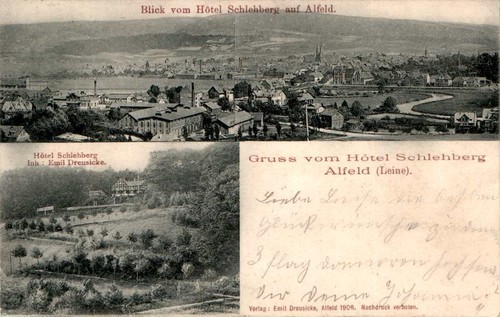 Blick vom Hôtel Schlehberg auf Alfeld.
Hôtel Schlehberg
Inh : Emil Dreusicke.
Gruss vom Hôtel Schlehberg
Alfeld (Leine).
Liebe die besten
Glück
3
der deine Johanne
Verlag : Emil Dreusicke, Alfeld 1904. Nachdruck verboten.